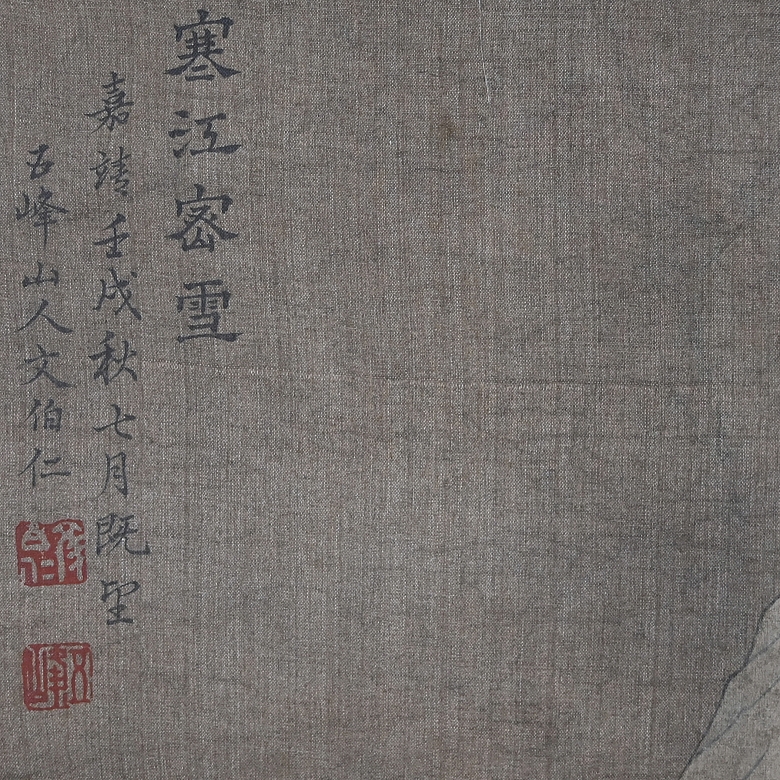 寒江密雪
嘉靖壬戌秋七月既望
五峰山人文伯仁